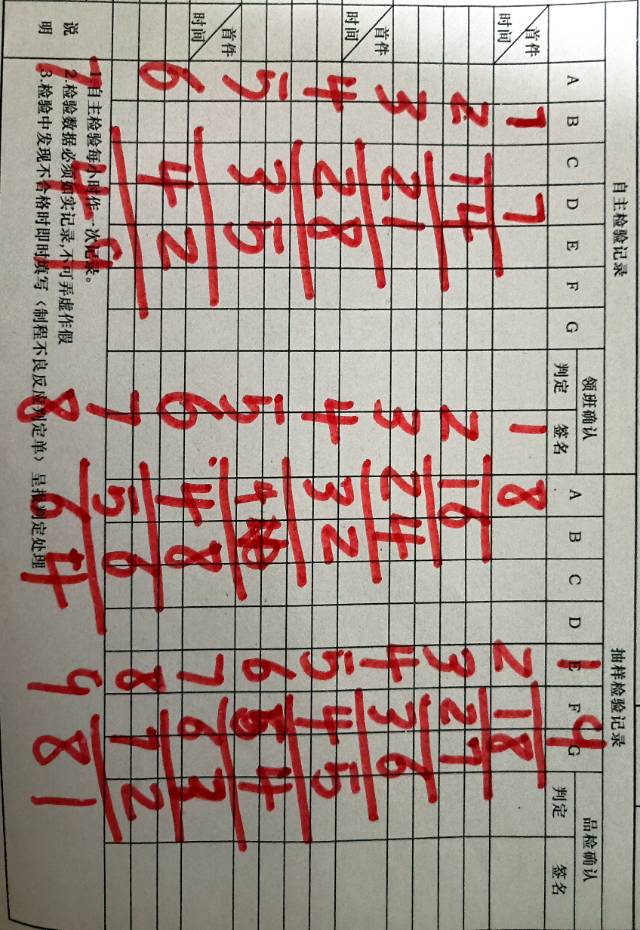 自主检验记录 抽样检验记录
领班确认 品检确认
A B C D E F G 判定 签名 A B C D E F G 判定 签名
1 9
首件
时间
1 7 1 8 2 18
2 14 2 16 3 27
3 21 3 24 4 36
首件
时间
4 28 4 32 5 45
5 35 5 40 6 54
首件
时间
6 42 6 48 7 63
7 49 7 56 8 72
8 64 9 81
说明
1.自主检验每小时作一次记录。
2.检验数据必须如实记录,不可弄虚作假
3.检验中发现不合格时即时填写《制程不良反应判定单》呈报判定处理